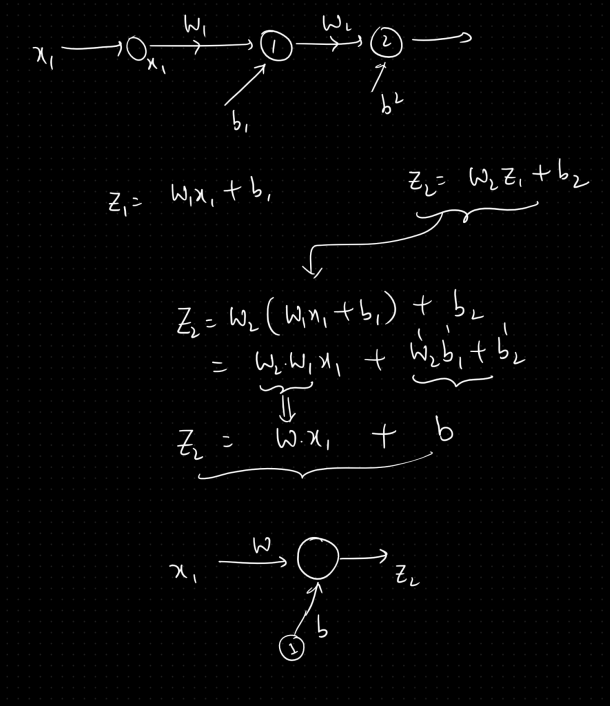 x₁ x₁ W₁ 1 W₂ 2
b₁ b²
Z₁ = W₁x₁ + b₁ Z₂ = W₂Z₁ + b₂
Z₂ = W₂(W₁x₁ + b₁) + b₂
= W₂·W₁x₁ + W₂b₁ + b₂
Z₂ = W·x₁ + b
x₁ W Z₂
b
1